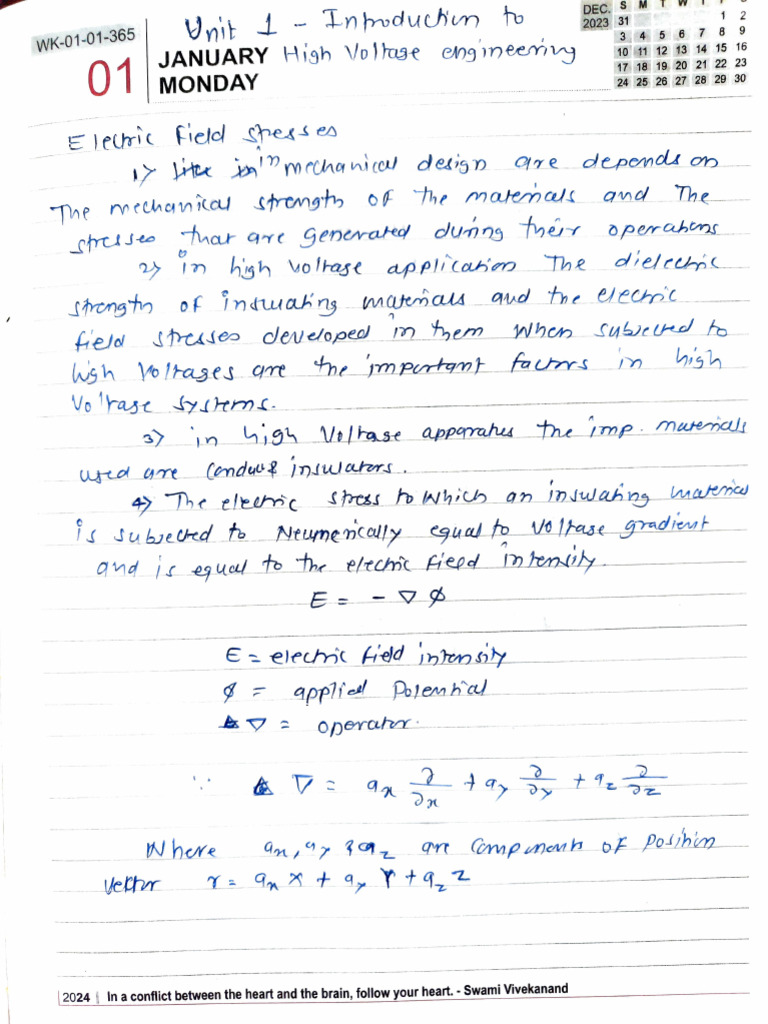 Unit 1 - Introduction to
WK-01-01-365
01
JANUARY High Voltage engineering
MONDAY
DEC. 2023
S M T W T F S
31 1 2
3 4 5 6 7 8 9
10 11 12 13 14 15 16
17 18 19 20 21 22 23
24 25 26 27 28 29 30
Electric field stresses
1) like in mechanical design are depends on
The mechanical strength of the materials and The
stresses that are generated during their operations
2) in high voltage application The dielectric
strength of insulating materials and the electric
field stresses developed in them When subjected to
high voltages are the important factors in high
Voltage systems.
3) in high Voltage apparatus the imp. materials
used are Conduct & insulators.
4) The electric stress to which an insulating material
is subjected to Neumerically equal to voltage gradient
and is equal to the electric field intensity.
E = - ∇ φ
E = electric field intensity
φ = applied Potential
∇ = operator.
∵ ∇ = ax ∂/∂x + ay ∂/∂y + az ∂/∂z
Where ax, ay & az are components of position
vektor r = ax x + ay Y + az z
2024 In a conflict between the heart and the brain, follow your heart. - Swami Vivekanand